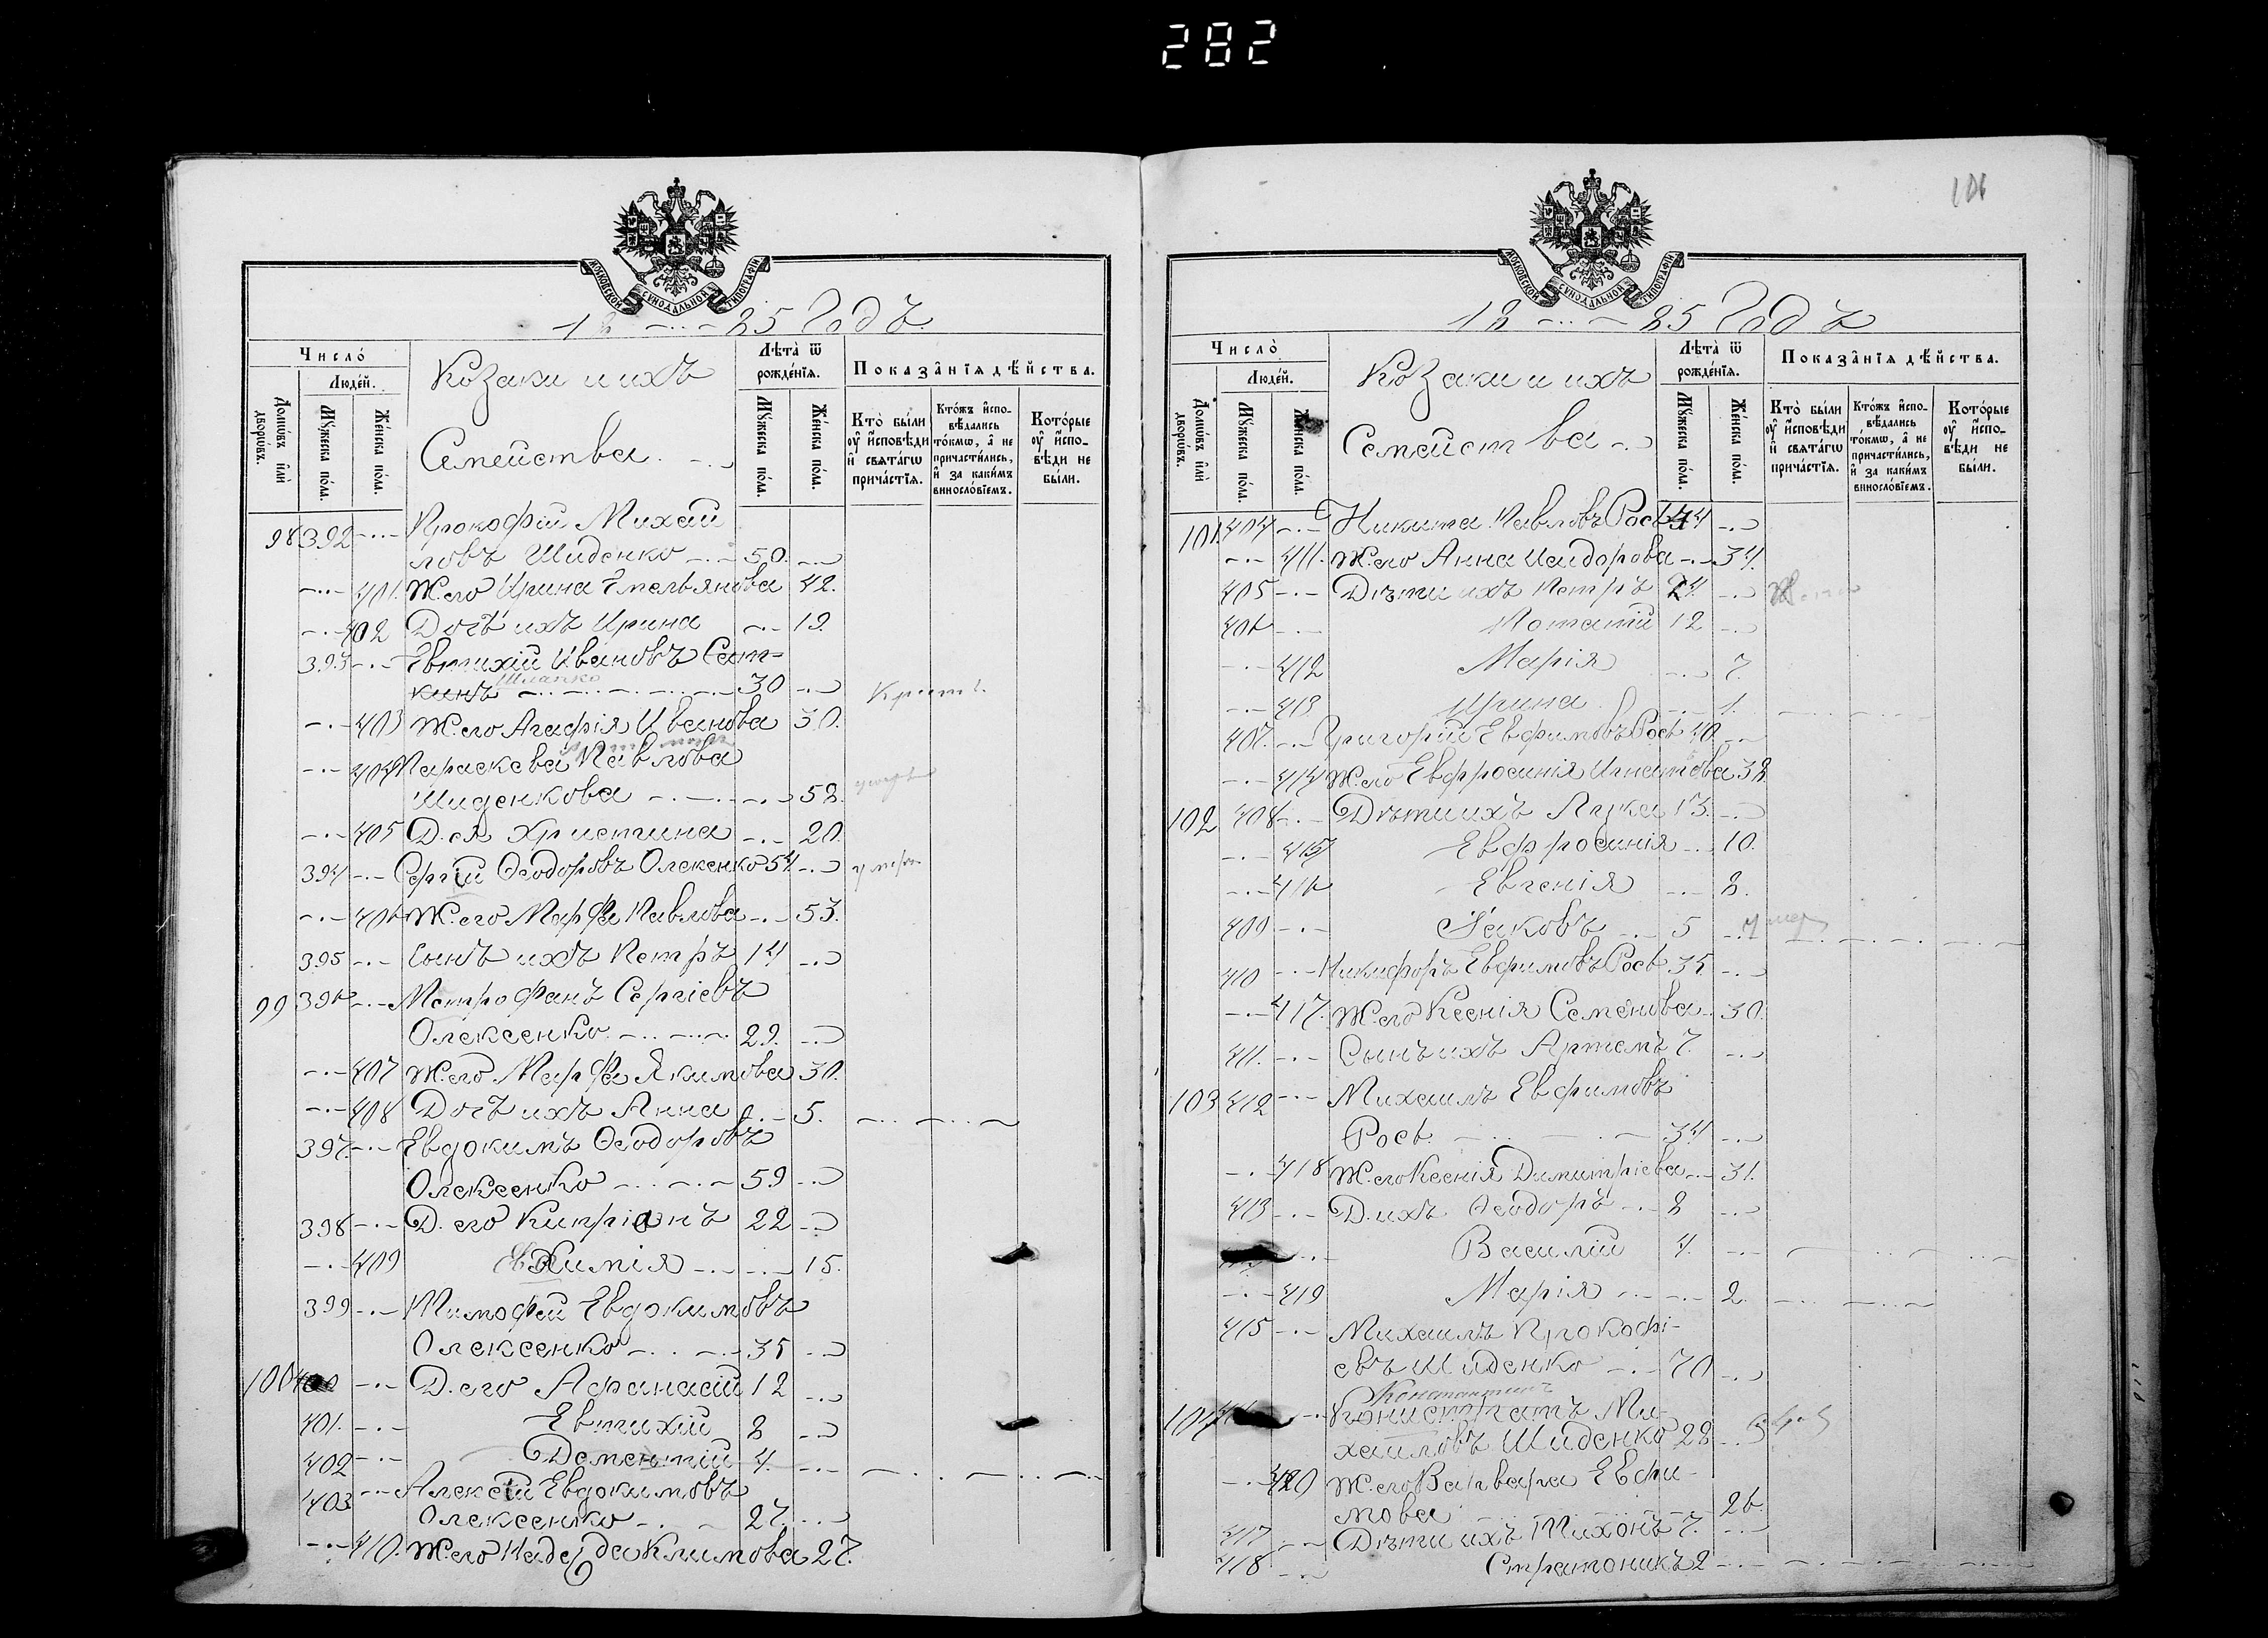 282
МОСКОВСКОЙ СѴНОДАЛЬНОЙ ТИПОГРАФІИ
18 -..- 85 Годъ
Число̀
Люде́й.
Домѡ́въ и҆лѝ дворѡ́въ.
Мꙋ́жеска по́ла.
Же́нска по́ла.
Козаки и ихъ
Семейства
Лѣта̀ ѿ рожде́нїѧ.
Мꙋ́жеска по́ла.
Же́нска по́ла.
Показа̑нїѧ дѣ́йства.
Кто̀ бы́ли оу҆ и҆сповѣди и҆ свѧта́гѡ прича́стїѧ.
Кто́жъ и҆спо-
вѣ́дались
то́кмѡ, а҆ не
причасти́лись,
и҆ за каки́мъ
винослові́емъ.
Кото́рые
оу҆ и҆спо-
вѣ́ди не
бы́ли.
98 392 -..- Прокофій Михай
ловъ Шиденко -..- 50. -..-
-..- 401. Ж. его Ирина Емельянова 42.
-..- 402 Дочь ихъ Ирина -..- 19.
393 -..- Евтихій Ивановъ Сят-
кинъ Шиапко -..- 30 -..-
-..- 403 Ж. его Агафія Иванова 30.
-..- 404 Параскева Павлова
Шиденкова -..- 58.
-..- 405 Д. ея Христина -..- 20.
394 -..- Сергій Ѳеодоровъ Олексенко 54 -..- умеръ
-..- 406 Ж. его Марфа Павлова -..- 53.
395 -..- Сынъ ихъ Петръ 14 -..-
99 396 -..- Метрофанъ Сергіевъ
Олексеенко -..- 29. -..-
-..- 407 Ж. его Марфа Якимова 30.
-..- 408 Дочь ихъ Анна -..- 5.
397. -..- Евдокимъ Ѳеодоровъ
Олексеенко -..- 59 -..-
398 -..- Д. его Кипріанъ 22 -..-
-..- 409 Евфимія -..- 15.
399 -..- Тимофей Евдокимовъ
Олексеенко -..- 35 -..-
100 400 -..- Д. его Афанасій 12 -..-
401. -..- Евтихій 8 -..-
402 -..- Дементій 4. -..-
403 -..- Алексѣй Евдокимовъ
Олексеенко -..- 27. -..-
-..- 410. Ж. его Надежда Климова 27.
106
МОСКОВСКОЙ СѴНОДАЛЬНОЙ ТИПОГРАФІИ
18 -..- 85 Годъ
Число̀
Люде́й.
Домѡ́въ и҆лѝ дворѡ́въ.
Мꙋ́жеска по́ла.
Же́нска по́ла.
Козаки и ихъ
Семейства
Лѣта̀ ѿ рожде́нїѧ.
Мꙋ́жеска по́ла.
Же́нска по́ла.
Показа̑нїѧ дѣ́йства.
Кто̀ бы́ли оу҆ и҆сповѣди и҆ свѧта́гѡ прича́стїѧ.
Кто́жъ и҆спо-
вѣ́дались
то́кмѡ, а҆ не
причасти́лись,
и҆ за каки́мъ
винослові́емъ.
Кото́рые
оу҆ и҆спо-
вѣ́ди не
бы́ли.
101 404 -..- Никита Павловъ Роев 44 -..-
-..- 411. Ж. его Анна Исидорова -..- 34.
405 -..- Дѣти ихъ Петръ 24. -..-
406 -..- Потапій 12 -..-
-..- 412 Марія -..- 7.
-..- 413 Ирина -..- 1.
407. -..- Григорій Евфимовъ Роев 40 -..-
-..- 414 Ж. его Евфросинія Игнатова 38
102 408 -..- Дѣти ихъ Лука 13. -..-
-..- 415 Евфросинія -..- 10.
-..- 416 Евгенія -..- 8.
409 -..- Іяковъ -..- 5 -..- умер
410 -..- Никифоръ Евфимовъ Роев 35 -..-
-..- 417. Ж. его Ксенія Семенова -..- 30.
411. -..- Сынъ ихъ Артемъ 7. -..-
103 412 -..- Михаилъ Евфимовъ
Роев -..- 34 -..-
-..- 418 Ж. его Ксенія Димитріева -..- 31.
413 -..- Д. ихъ Ѳеодоръ -..- 8 -..-
-..- Василій 4. -..-
-..- 419 Марія -..- 2.
415 -..- Михаилъ Прокофі-
евъ Шиденко -..- 70 -..-
Константинъ
104 -..- Конистратъ Ми-
хаиловъ Шиденко 28 -..-
-..- 420 Ж. его Варвара Евфи-
мова -..- 26.
417 -..- Дѣти ихъ Тихонъ 7. -..-
418 -..- Стратоникъ 2 -..-